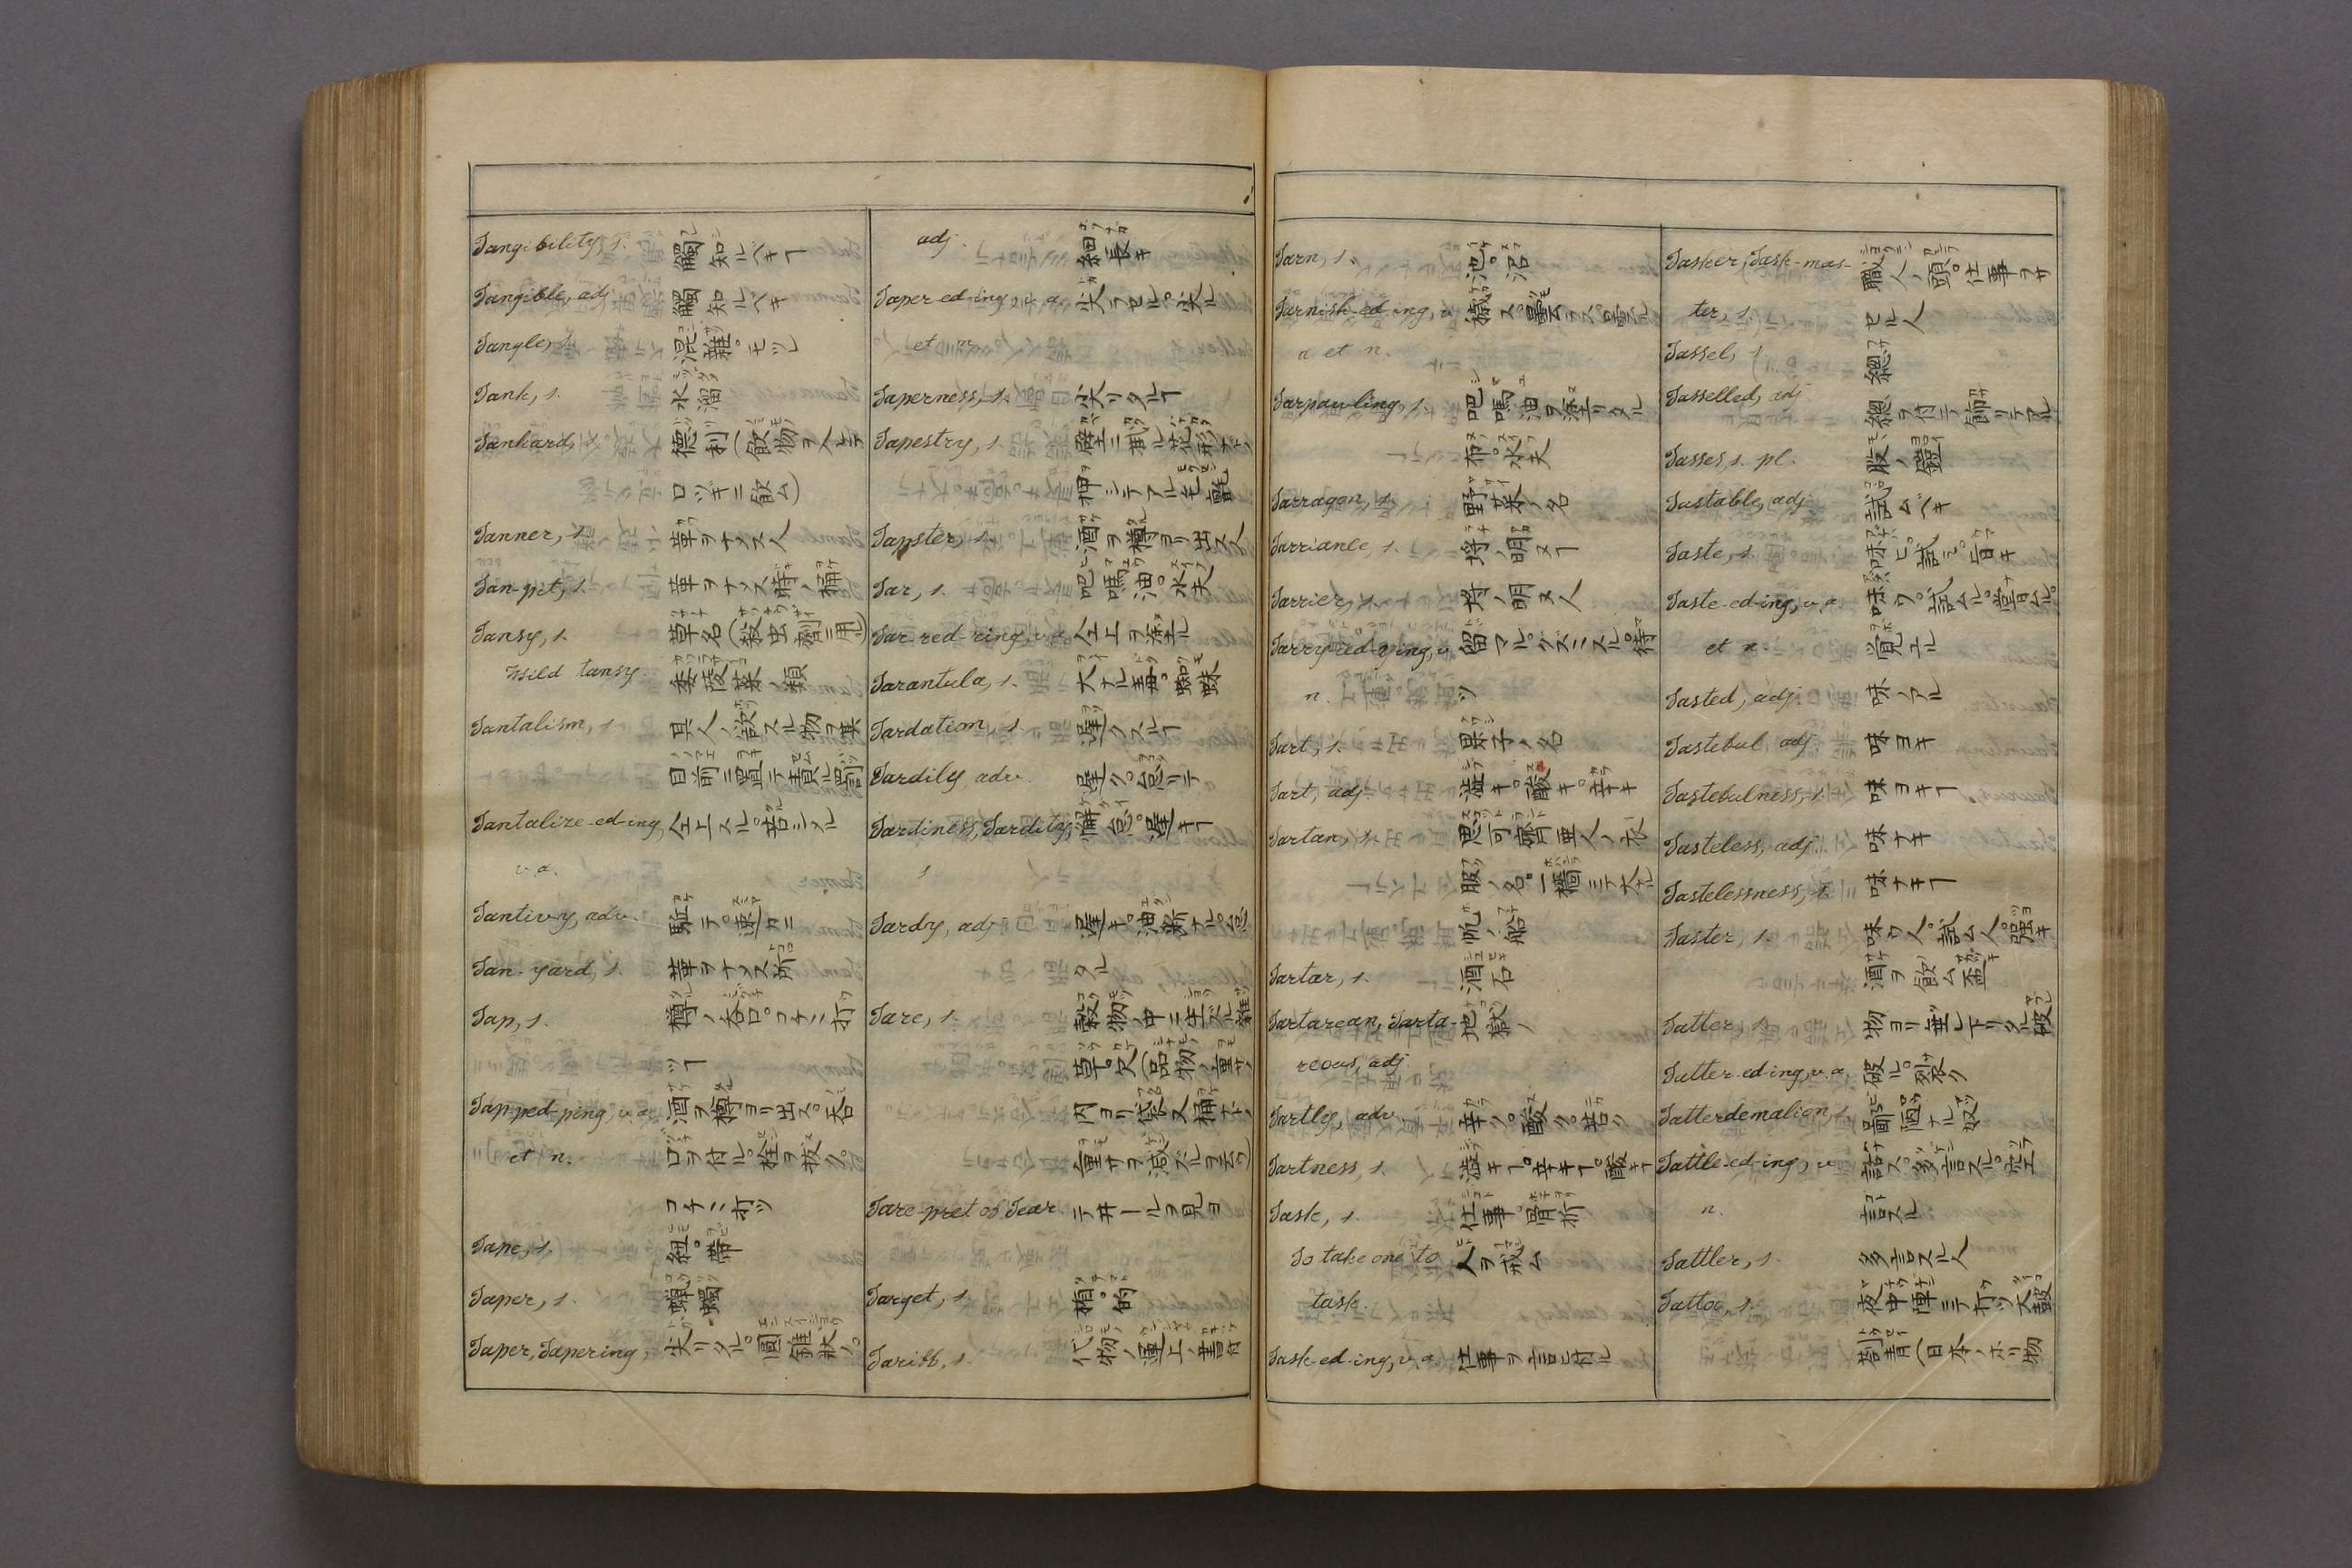 Tangibility, s. 觸知ルベキヿ
Tangible, adj. 觸知ルベキ
Tangle, s. 混雑。モツレ
Tank, s. 水溜
Tankard, s. 德利(飲物ヲ入レテ
口ヅキニ飲ム)
Tanner, s. 革ヲナメス人
Tan-pit, s. 革ヲナメス時ノ桶
Tansy, s. 草名(殺虫剤ニ用)
Wild tansy 委陵菜ノ類
Tantalism, s. 其人ノ欲スル物ヲ其
目前ニ置テ責ル罰
Tantalize-ed-ing, 仝上スル。苦シメル
v. a.
Tantivy, adv. 駈テ。速カニ
Tan-yard, s. 革ヲナメス所
Tap, s. 樽ノ呑口。コナミニ打
ツヿ
Tap-ped-ping, v. a. 酒ヲ樽ヨリ出ス。呑
et n. 口ヲ付ル。栓ヲ拔ク。
コナミニ打ツ
Tape, s. 紐。帯
Taper, s. 蠟燭
Taper, Tapering, 尖リタル。圓錐狀ノ。
adj. 細長キ
Taper-ed-ing, v. a. 尖ラセル。尖ル
et n.
Taperness, s. 尖リタルヿ
Tapestry, s. 壁ニ掛ル花形ナド
押シテアル毛氈
Tapster, s. 酒ヲ樽ヨリ出ス人
Tar, s. 吧嗎油。水夫
Tar-red-ring, v. a. 仝上ヲ塗ル
Tarantula, s. 大ナル毒。蜘蛛
Tardation, s. 遅クスルヿ
Tardily, adv. 遅ク。怠リテ
Tardiness, Tardity, 懈怠。遅キヿ
s.
Tardy, adj. 遅キ。油断ナル。怠
タル
Tare, s. 穀物ノ中ニ生ズル雑
草。欠(品物ノ重サノ
内ヨリ袋又桶ナドノ
重サヲ減ズルヲ云)
Tare-pret of Tear. テ井ールヲ見ヨ
Target, s. 楯。的
Tariff, s. 代物ノ運上ノ書付
Tarn, s. 池。沼
Tarnish-ed-ing, v. 穢ス。曇ラス。曇ル
a et n.
Tarpawling, s. 吧嗎油ヲ塗リタル
布。水夫
Tarragon, s. 野菜ノ名
Tarriance, s. 埒ノ明ヌヿ
Tarrier, s. 埒ノ明ヌ人
Tarry-ied-ying, v. 留マル。グズミスル。待
n. ツ
Tart, s. 果子ノ名
Tart, adj. 澁キ。酸キ。辛キ
Tartan, s. 思可齊亜人ノ衣
服ノ名。一檣ニテ大ナル
帆ノ船
Tartar, s. 酒石
Tartarean, Tarta- 地獄ノ
reous, adj.
Tartly, adv. 辛ク。酸ク。苦ク
Tartness, s. 澁キヿ。辛キヿ。酸キヿ
Task, s. 仕事。骨折
To take one to 人ヲ戒ム
task.
Task-ed-ing, v. a. 仕事ヲ言ヒ付ル
Tasker, Task-mas- 職人ノ頭。仕事ヲサ
ter, s. セル人
Tassel, s. 總
Tasselled, adj. 總ヲ付テ飾リテアル
Tasses, s. pl. 股ノ鎧
Tastable, adj. 試ムベキ
Taste, s. 味ヒ。試ミ。旨キ
Taste-ed-ing, v. a. 味ワフ。試ムル。嘗ムル。
et n. 覚エル
Tasted, adj. 味ノアル
Tasteful, adj. 味ヨキ
Tastefulness, s. 味ヨキヿ
Tasteless, adj. 味ナキ
Tastelessness, s. 味ナキヿ
Taster, s. 味ワフ人。試ム人。
酒ヲ飲ム盃
Tatter, s. 物ヨリ垂レ下リタル破
Tatter-ed-ing, v. a. 破ル。裂ク
Tatterdemalion, s. 鄙陋ナル奴
Tattle-ed-ing, v. 話ス。多言スル。空
n. 言スル
Tattler, s. 多言スル人
Tattoo, s. 夜中陣ニテ打ツ太鼓
劄青(日本ノホリ物